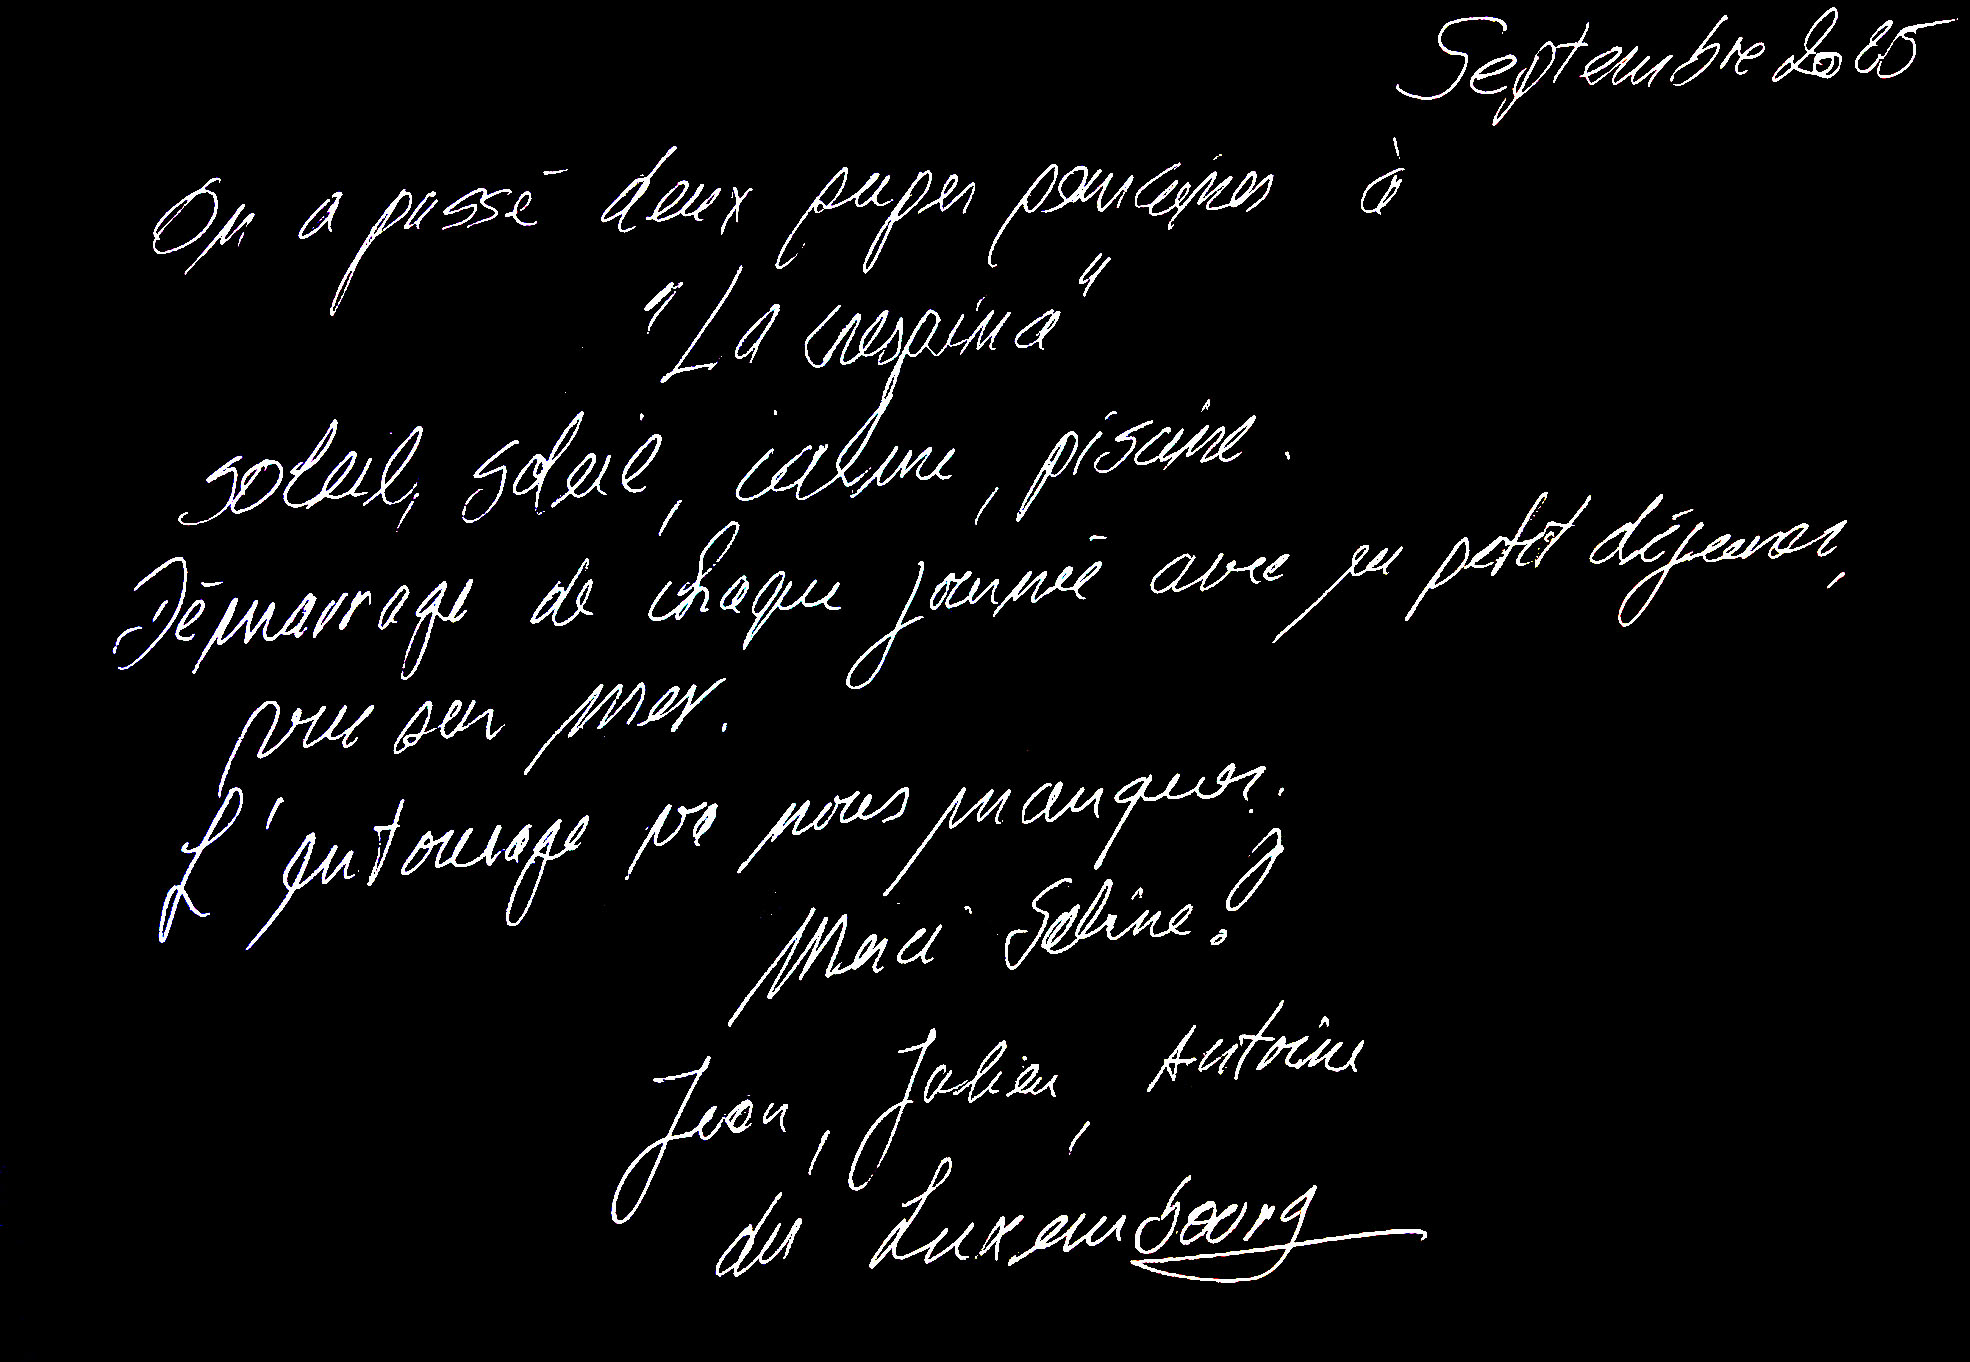 Septembre 2025
On a passé deux super semaines à
"La Crespina"
soleil, soleil, calme, piscine.
Démarrage de chaque journée avec un petit déjeuner,
vue sur mer.
L'entourage va nous manquer.
Merci Sabine!
Jean, Julien, Antoine
du Luxembourg